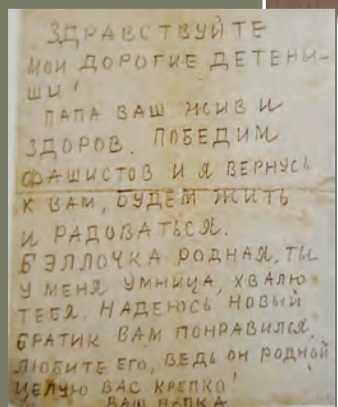 ЗДРАВСТВУЙТЕ
МОИ ДОРОГИЕ ДЕТЕНЫ-
ШИ!
ПАПА ВАШ ЖИВ И
ЗДОРОВ. ПОБЕДИМ
ФАШИСТОВ И Я ВЕРНУСЬ
К ВАМ, БУДЕМ ЖИТЬ
И РАДОВАТЬСЯ.
БЭЛЛОЧКА РОДНАЯ, ТЫ
У МЕНЯ УМНИЦА, ХВАЛЮ
ТЕБЯ. НАДЕЮСЬ НОВЫЙ
БРАТИК ВАМ ПОНРАВИЛСЯ,
ЛЮБИТЕ ЕГО, ВЕДЬ ОН РОДНОЙ
ЦЕЛУЮ ВАС КРЕПКО!
ВАШ ПАПКА